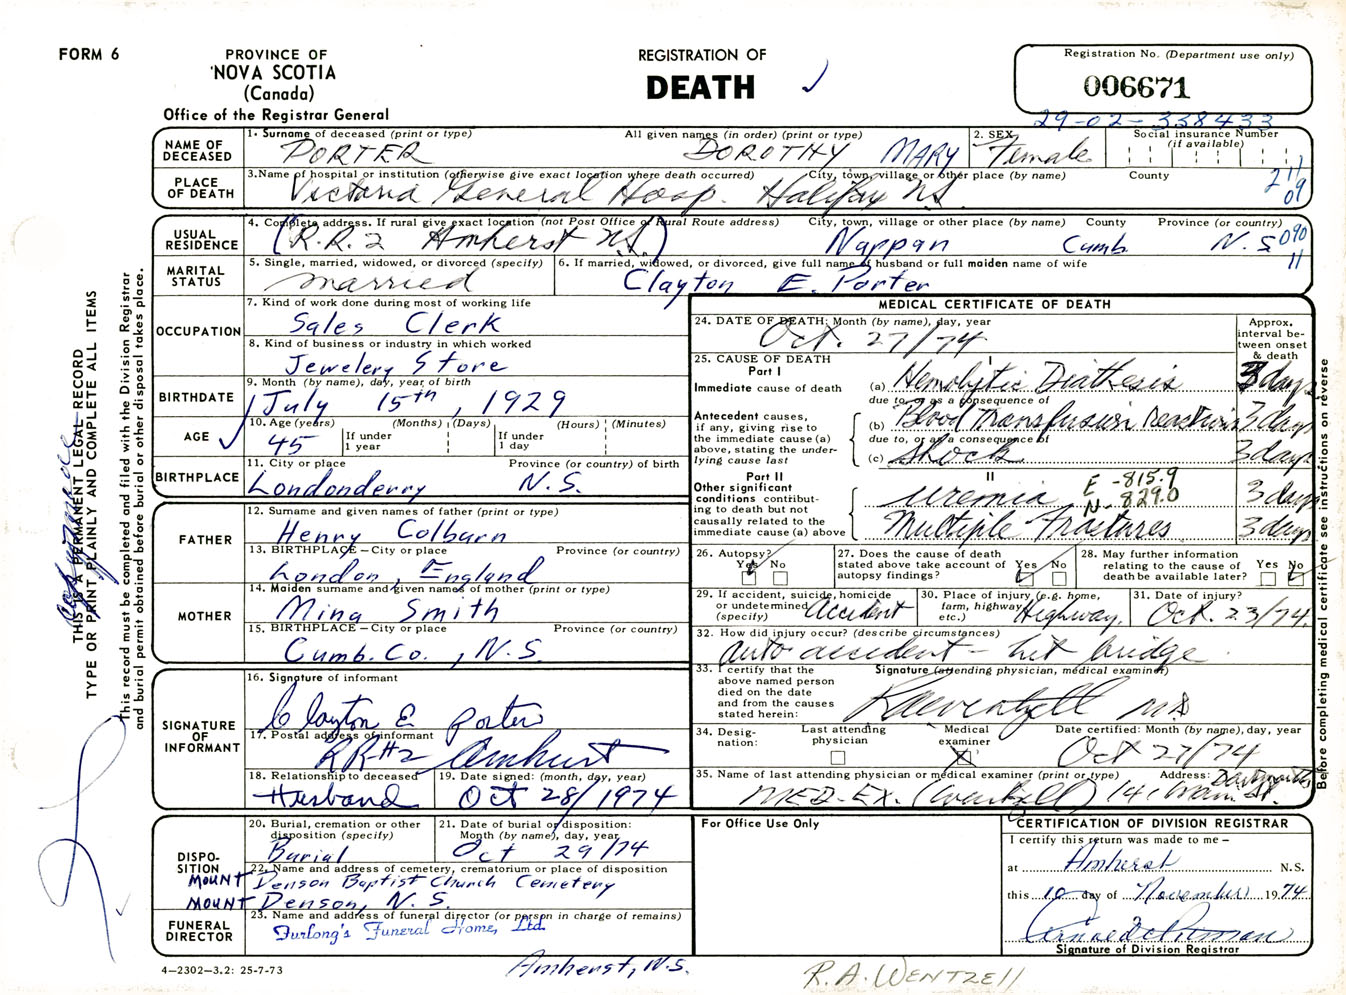 FORM 6
PROVINCE OF
NOVA SCOTIA
(Canada)
Office of the Registrar General
REGISTRATION OF
DEATH
Registration No. (Department use only)
006671
29-02-338433
NAME OF DECEASED
1. Surname of deceased (print or type) All given names (in order) (print or type)
PORTER DOROTHY MARY
2. SEX
Female
Social insurance Number
(if available)
PLACE OF DEATH
3. Name of hospital or institution (otherwise give exact location where death occurred) City, town, village or other place (by name) County
Victoria General Hosp. Halifax N.S.
211
09
USUAL RESIDENCE
4. Complete address. If rural give exact location (not Post Office or Rural Route address) City, town, village or other place (by name) County Province (or country)
(R.R.2 Amherst N.S.) Nappan Cumb. N.S.
090
11
MARITAL STATUS
5. Single, married, widowed, or divorced (specify)
married
6. If married, widowed, or divorced, give full name of husband or full maiden name of wife
Clayton E. Porter
OCCUPATION
7. Kind of work done during most of working life
Sales Clerk
8. Kind of business or industry in which worked
Jewelery Store
BIRTHDATE
9. Month (by name), day, year of birth
July 15th, 1929
AGE
10. Age (years) (Months) (Days) (Hours) (Minutes)
45 If under 1 year If under 1 day
BIRTHPLACE
11. City or place Province (or country) of birth
Londonderry N.S.
FATHER
12. Surname and given names of father (print or type)
Henry Colburn
13. BIRTHPLACE – City or place Province (or country)
London, England
MOTHER
14. Maiden surname and given names of mother (print or type)
Mina Smith
15. BIRTHPLACE – City or place Province (or country)
Cumb. Co., N.S.
SIGNATURE OF INFORMANT
16. Signature of informant
Clayton E Porter
17. Postal address of informant
RR#2 Amhurst
18. Relationship to deceased
Husband
19. Date signed: (month, day, year)
Oct 28/1974
DISPOSITION
20. Burial, cremation or other disposition (specify)
Burial
21. Date of burial or disposition: Month (by name), day, year
Oct 29/74
22. Name and address of cemetery, crematorium or place of disposition
MOUNT Denson Baptist Church Cemetery
MOUNT Denson, N.S.
FUNERAL DIRECTOR
23. Name and address of funeral director (or person in charge of remains)
Furlong's Funeral Home, Ltd.
Amherst, N.S.
4–2302–3.2: 25-7-73
MEDICAL CERTIFICATE OF DEATH
24. DATE OF DEATH: Month (by name), day, year
Oct. 27/74
Approx. interval between onset & death
25. CAUSE OF DEATH
Part I
I
Immediate cause of death
(a) Hemolytic Diathesis 3 days
due to, or as a consequence of
Antecedent causes, if any, giving rise to the immediate cause (a) above, stating the underlying cause last
(b) Blood Transfusion Reaction 3 days
due to, or as a consequence of
(c) Shock 3 days
Part II
II
Other significant conditions contributing to death but not causally related to the immediate cause (a) above
E - 815.9
N - 829.0
uremia 3 days
Multiple Fractures 3 days
26. Autopsy?
Yes No
27. Does the cause of death stated above take account of autopsy findings?
Yes No
28. May further information relating to the cause of death be available later?
Yes No
29. If accident, suicide, homicide or undetermined (specify)
Accident
30. Place of injury (e.g. home, farm, highway etc.)
Highway.
31. Date of injury?
Oct. 23/74.
32. How did injury occur? (describe circumstances)
auto accident – hit bridge.
33. I certify that the above named person died on the date and from the causes stated herein:
Signature (attending physician, medical examiner)
34. Designation:
Last attending physician
Medical examiner
Date certified: Month (by name), day, year
Oct 27/74
35. Name of last attending physician or medical examiner (print or type) Address:
MED-EX. (Wentzell) Dartmouth
For Office Use Only
CERTIFICATION OF DIVISION REGISTRAR
I certify this return was made to me –
at Amherst N.S.
this 10 day of November 1974
Signature of Division Registrar
R.A. WENTZELL
THIS IS A PERMANENT LEGAL RECORD
TYPE OR PRINT PLAINLY AND COMPLETE ALL ITEMS
This record must be completed and filed with the Division Registrar
and burial permit obtained before burial or other disposal takes place.
Before completing medical certificate see instructions on reverse